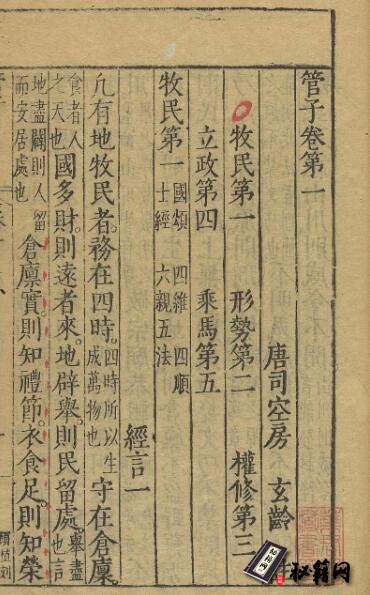 管子卷第一
唐司空房 玄齡
牧民第一 形勢第二 權修第三
立政第四 乘馬第五
牧民第一 國頌 四維 四順 士經 六親五法
經言一
凡有地牧民者。務在四時。四時所以生成萬物也 守在倉廩。
食者人之天也 國多財。則遠者來。地辟舉。則民留處。舉盡也言
地盡闢則人留而安居處也 倉廩實。則知禮節。衣食足。則知榮
秘籍网